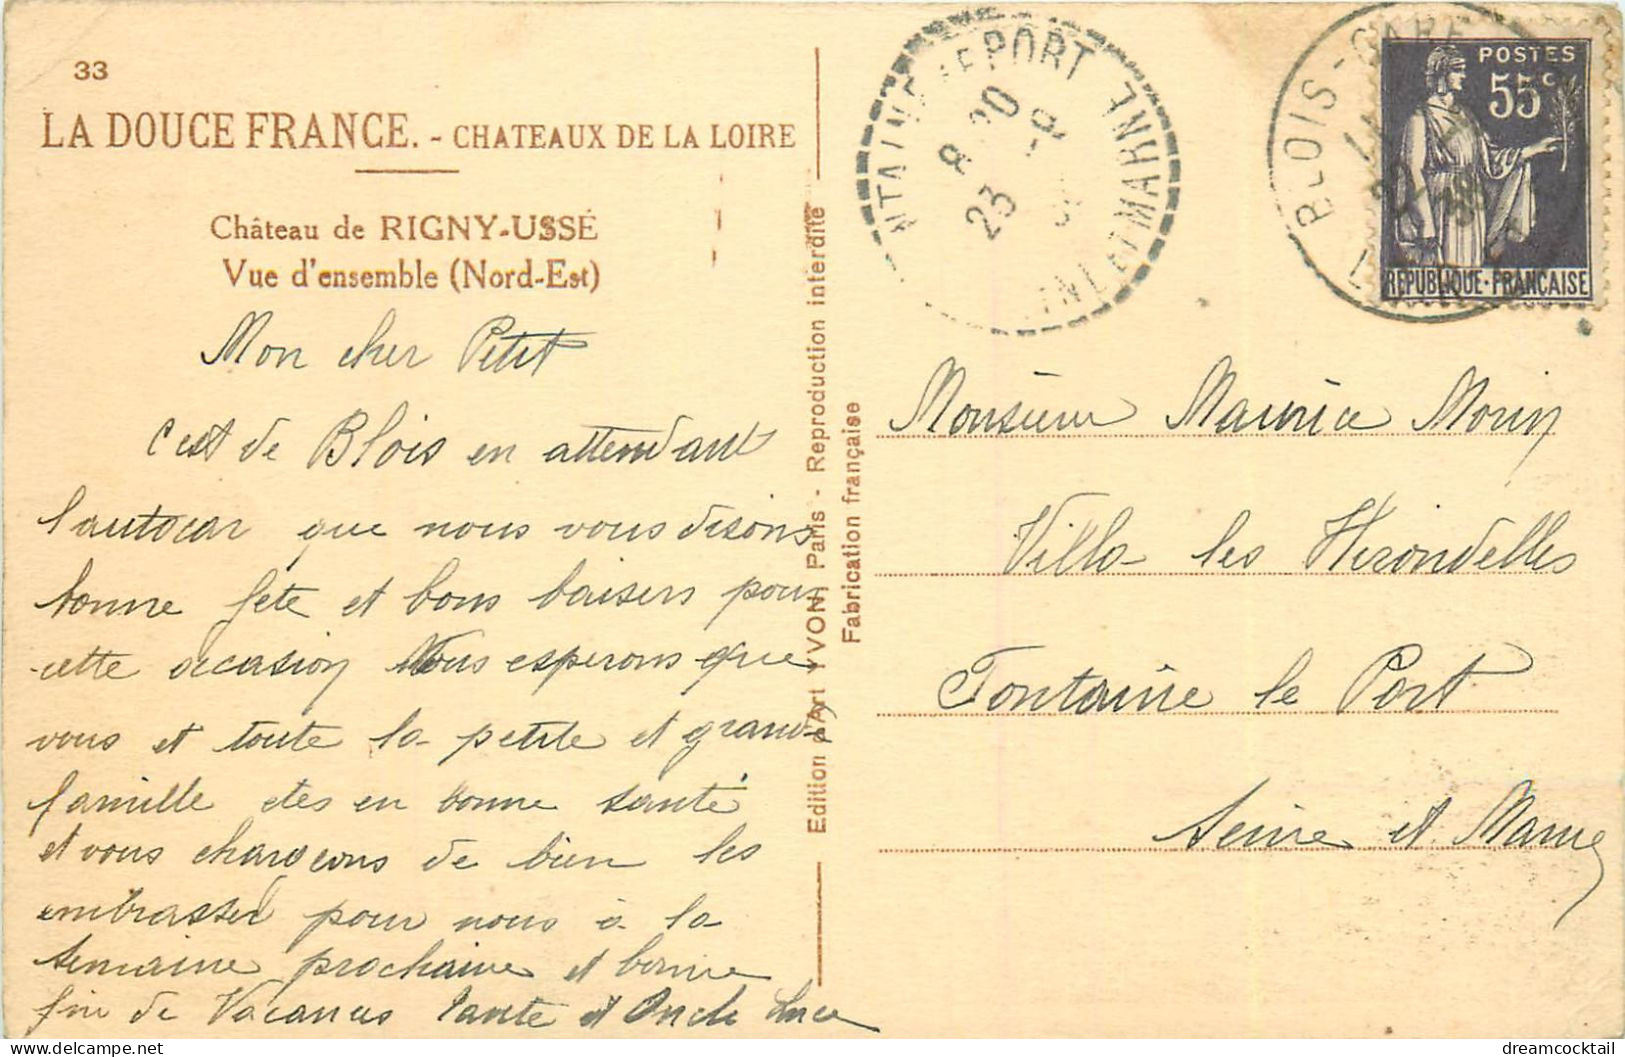 33
LA DOUCE FRANCE. - CHATEAUX DE LA LOIRE
Château de RIGNY-USSÉ
Vue d'ensemble (Nord-Est)
Mon cher Petit
C'est de Blois en attendant
l'autocar que nous vous disons
bonne fête et bons baisers pour
cette occasion Nous esperons que
vous et toute la petite et grande
famille etes en bonne santé
et vous chargeons de bien les
embrasser pour nous à la
semaine prochaine et bonne
fin de Vacances Tante et Oncle
Edition d'Art YVON, Paris - Reproduction interdite
Fabrication française
LEPORT
8 20
23 -8
ET MARNE
BLOIS-GARE
POSTES
55c
REPUBLIQUE·FRANÇAISE
Monsieur Maurice Morin
Villa les Hirondelles
Fontaine le Port
Seine et Marne
dreamcocktail